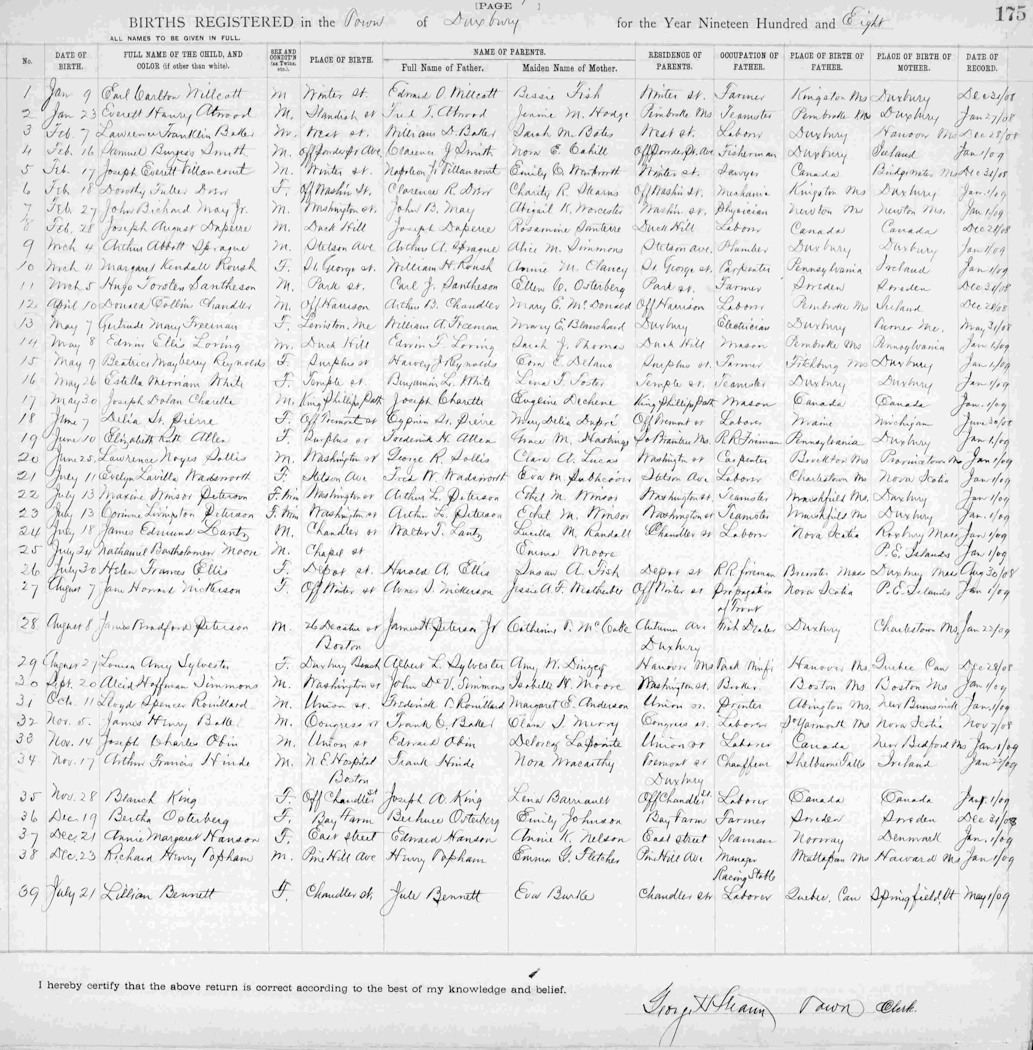 [PAGE ]
175
BIRTHS REGISTERED in the Town of Duxbury for the Year Nineteen Hundred and Eight
ALL NAMES TO BE GIVEN IN FULL.
No. DATE OF BIRTH. FULL NAME OF THE CHILD, AND COLOR (if other than white). SEX AND CONDIT'N (as Twins, etc.) PLACE OF BIRTH. NAME OF PARENTS. Full Name of Father. Maiden Name of Mother. RESIDENCE OF PARENTS. OCCUPATION OF FATHER. PLACE OF BIRTH OF FATHER. PLACE OF BIRTH OF MOTHER. DATE OF RECORD.
1 Jan 9 Earl Carlton Willcott M. Winter St. Edward O. Willcott Bessie Fish Winter st. Farmer Kingston Ms Duxbury Dec 31/08
2 Jan 23 Everett Henry Atwood M. Standish st Fred T. Atwood Jennie M. Hodge Pembroke Ms Teamster Pembroke Ms Duxbury Jan 27/08
3 Feb. 7 Lawrence Franklin Baker M. West st. William D. Baker Sarah M. Bates West St. Laborer Duxbury Hanover Ms Dec 28/08
4 Feb. 16 Samuel Burgess Smith M. Off Powder Pt Ave Clarence J Smith Nora E. Cahill Off Powder Pt. Ave Fisherman Duxbury Ireland Jan 1/09
5 Feb. 17 Joseph Everett Villancourt M. Winter st. Napoleon J. Villancourt Emily O. Wentworth Winter st. Sawyer Canada Bridgewater Ms Dec 31/08
6 Feb 18 Dorothy Fuller Dow F. Off Wash'n St. Clarence R. Dow Charity R. Stearns Off Wash'n st Mechanic Kingston Ms Duxbury Jan. 1/09
7 Feb 27 John Richard May Jr. M. Washington st. John B. May Abigail K. Worcester Wash'n st. Physician Newton Ms Newton Ms. Jan 1/09
8 Feb. 28 Joseph August Duperre M. Duck Hill Joseph Duperre Rosamine Duck Hill Laborer Canada Canada Dec 28/08
9 Mch 4 Arthur Abbott Sprague M. Stetson Ave Arthur A. Sprague Alice M. Simmons Stetson Ave. Plumber Duxbury Duxbury Jan 1/09
10 Mch 4 Margaret Kendall Roush F. St. George st. William H. Roush Annie M. Clancy St. George st. Carpenter Pennsylvania Ireland Jan 1/09
11 Mch 5 Hugo Torsten Santheson M. Park st. Carl J. Santheson Ellen C. Osterberg Park st. Farmer Sweden Sweden Dec 31/08
12 April 10 Donald Collin Chandler M. Off Harrison Arthur B. Chandler Mary E. McDonald Off Harrison Laborer Pembroke Ms Ireland Dec 28/08
13 May 7 Gertrude Mary Freeman F. Lewiston, Me William A. Freeman Mary E. Blanchard Duxbury Electrician Duxbury Turner Me. May 31/08
14 May 8 Edwin Ellis Loring M. Duck Hill Edwin T. Loring Sarah J. Thomas Duck Hill Mason Pembroke Ms Pennsylvania Jan. 1/09
15 May 9 Beatrice Mayberry Reynolds F. Surplus st Harvey J Reynolds Cora E Delano Surplus st. Farmer Fitchburg Ms Duxbury Jan. 1/09
16 May 26 Estella Merriam White F. Temple st. Benjamin L. White Lena T. Foster Temple st. Teamster Duxbury Duxbury Jan. 1/09
17 May 30 Joseph Dolan Charette M. King Phillips Path Joseph Charette Eugenie Dechene King Phillips Path Mason Canada Canada Jan. 1/09
18 June 7 Delia St. Pierre F. Off Tremont st Cyprien St. Pierre Mary Delia Dupré Off Tremont st Laborer Maine Michigan June 30/08
19 June 10 Elizabeth Kitt Allen F. Surplus st Frederick H. Allen Grace M. Hastings R R Fireman Pennsylvania Duxbury Jan 1/09
20 June 25. Lawrence Noyes Sollis M. Washington st George R. Sollis Clara A. Lucas Washington st Carpenter Brockton Ms Provincetown Ms Jan 1/09
21 July 11 Evelyn Lavilla Wadsworth F. Stetson Ave Fred W. Wadsworth Eva M. Stetson Ave Laborer Charlestown Ms Nova Scotia Jan 1/09
22 July 13 Maxine Winsor Peterson F. Twin Washington st Arthur L. Peterson Ethel M. Winsor Washington st. Teamster Marshfield Ms. Duxbury Jan 1/09
23 July 13 Corinne Livingston Peterson F. Twin Washington st Arthur L. Peterson Ethel M. Winsor Washington st Teamster Marshfield Ms Duxbury Jan. 1/09
24 July 18 James Edmund Lantz M. Chandler st Walter T. Lantz Lucella M. Randall Chandler st Laborer Nova Scotia Roxbury Mass Jan 1/09
25 July 24 Nathaniel Bartholomew Moore M. Chapel st Emma Moore P.E. Islands Jan 1/09
26 July 30 Helen Frances Ellis F. Depot st. Harold A. Ellis Susan A. Fish Depot st R.R. fireman Brewster Mass Duxbury Mass Aug 30/08
27 August 7 Jane Howard Nickerson F. Off Winter st Abner S. Nickerson Jessie A. F. Weatherbee Off Winter st Propagation Nova Scotia P.E. Islands Jan 1/09
of Trout
28 August 8 James Bradford Peterson M. 26 Decatur st James H. Peterson Jr Catherine V. McCabe Autumn Ave Fish Dealer Duxbury Charlestown Ms, Jan 22/09
Boston Duxbury
29 August 27 Louisa Amy Sylvester F. Duxbury Beach Albert L. Sylvester Amy W. Dingey Hanover Ms Tack Manf'r Hanover Ms. Quebec Can Dec 28/08
30 Sept. 20 Alcid Hoffman Simmons M. Washington st John DeV. Simmons Isabelle H. Moore Washington st. Broker Boston Ms Boston Ms Jan 1/09
31 Oct. 11 Lloyd Spencer Rouillard M. Union st. Frederick P. Rouillard Margaret E. Anderson Union st. Printer Abington Ms New Brunswick Jan. 1/09
32 Nov. 5. James Henry Baker M. Congress st Frank C. Baker Clara T. Merry Congress st. Laborer So Yarmouth Ms. Nova Scotia Nov 7/08
33 Nov. 14 Joseph Charles Obin M. Union st Edward Obin Delorey LaPointe Union st Laborer Canada New Bedford Ms Jan 1/09
34 Nov. 17 Arthur Francis Hinde M. N E Hospital Frank Hinde Nora Macarthy Tremont st Chauffeur Shelburne Falls Ireland Jan 22/09
Boston Duxbury
35 Nov. 28 Blanch King F. Off Chandler St Joseph W. King Lena Barriault Off Chandler St. Laborer Canada Canada Jan. 1/09
36 Dec. 19 Bertha Osterberg F. Bay Farm Osterberg Emily Johnson Bay Farm Farmer Sweden Sweden Dec 31/08
37 Dec. 21 Annie Margaret Hanson F. East Street Edward Hanson Annie K. Nelson East street Seaman Norway Denmark Jan. 1/09
38 Dec. 23 Richard Henry Popham M. Pine Hill Ave Henry Popham Emma G. Fletcher Pine Hill Ave Manager Mattapan Ms Harvard Ms Jan 1/09
Racing Stable
39 July 21 Lillian Bennett F. Chandler St. Jule Bennett Eva Burke Chandler st Laborer Quebec, Can Springfield, Vt May 1/09
I hereby certify that the above return is correct according to the best of my knowledge and belief.
George H. Stearns Town Clerk.